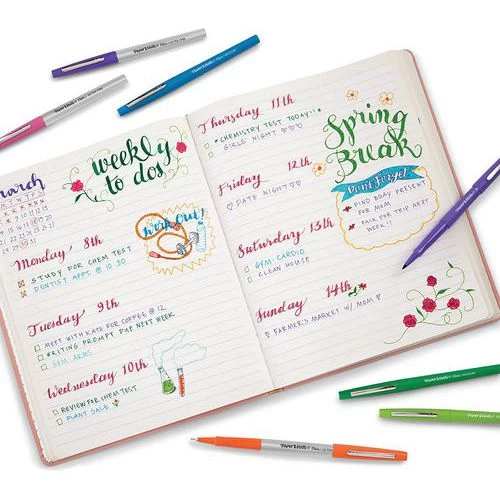 weekly
to dos
march
Monday 8th
STUDY FOR CHEM TEST
DENTIST APPT. @ 10:30
Work Out!
Tuesday 9th
MEET WITH KATE FOR COFFEE @ 12
WRITING PROMPT DUE NEXT WEEK
GYM ARMS
Wednesday 10th
REVIEW FOR CHEM TEST
PLANT SALE
Thursday 11th
*CHEMISTRY TEST TODAY!!*
GIRLS' NIGHT ♡♡♡
Friday 12th
♡ DATE NIGHT ♡♡♡
Saturday 13th
GYM CARDIO
CLEAN HOUSE
Sunday 14th
♡ FARMER'S MARKET w/ MOM ♡
Spring
Break
Don't Forget
FIND BDAY PRESENT
FOR MOM
PACK FOR TRIP NEXT
WEEK!!
Paper Mate
Paper Mate
Paper Mate
Paper Mate
Paper Mate
Paper Mate
Paper Mate